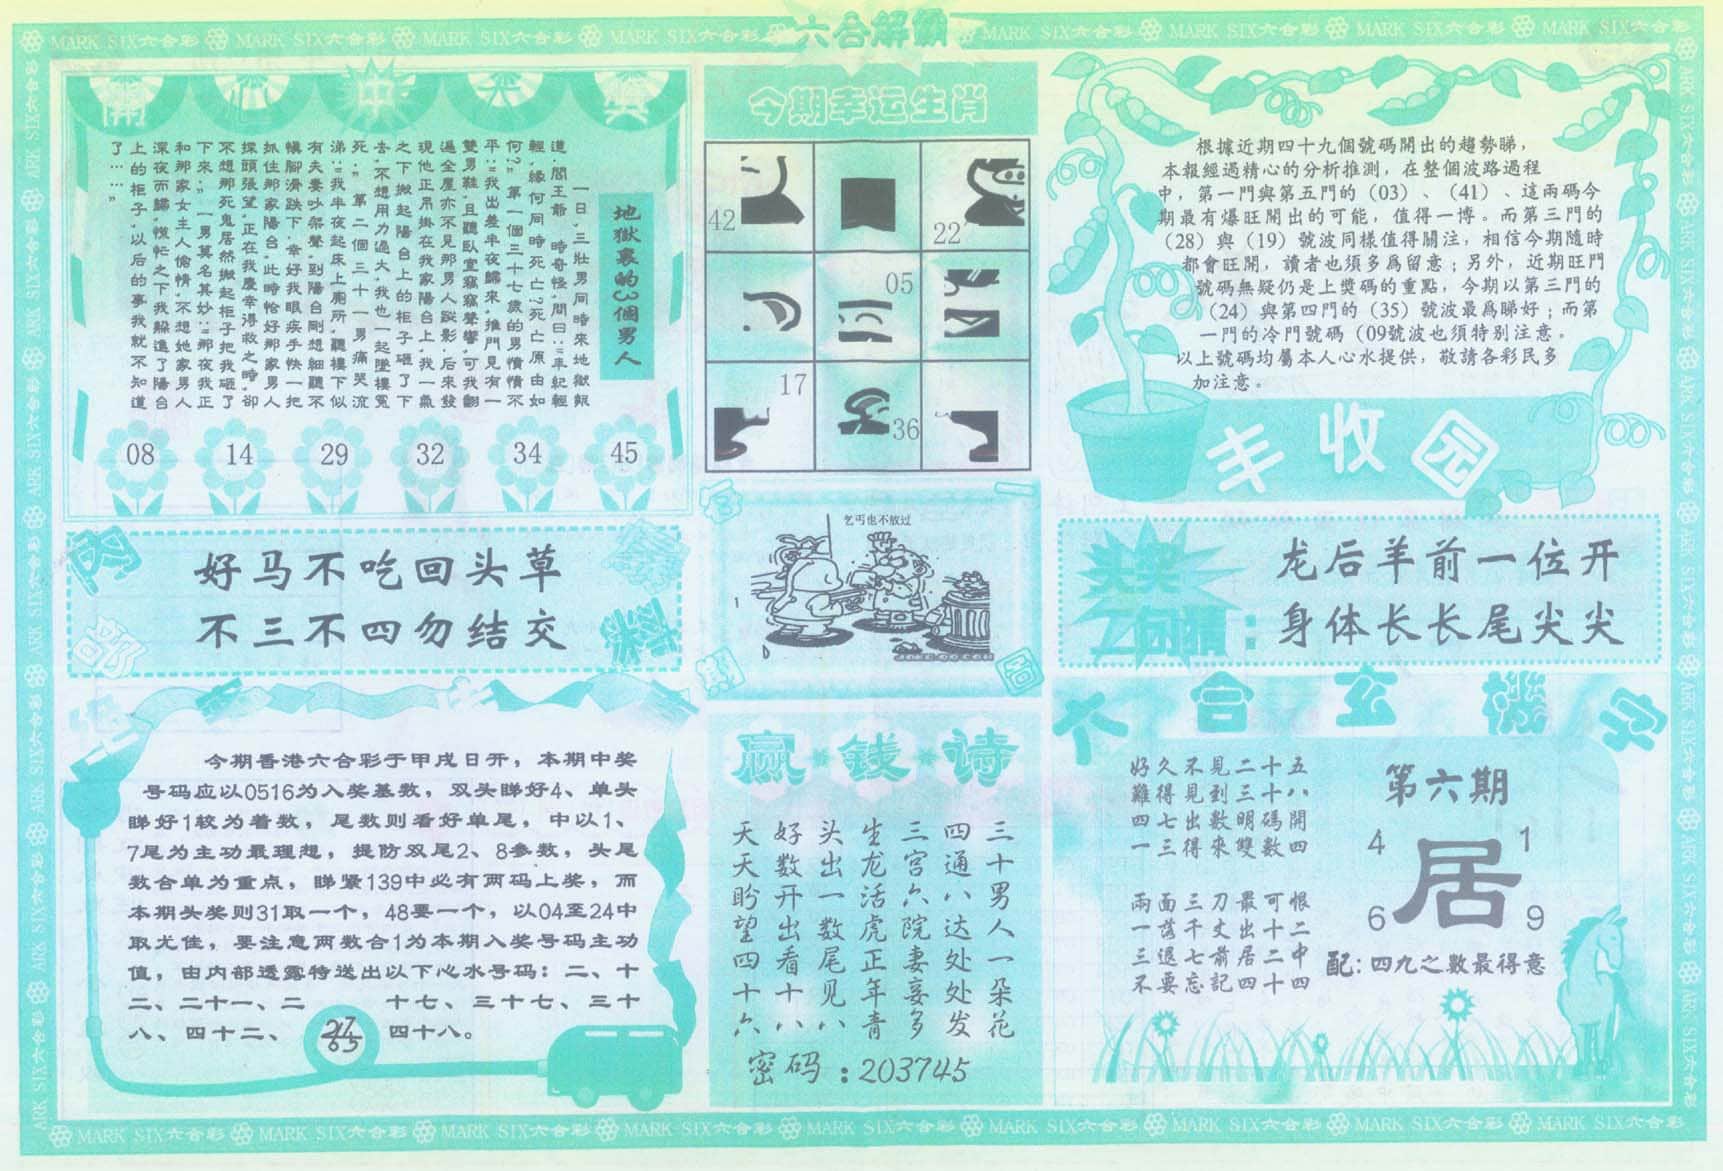 六合解霸
MARK SIX六合彩 MARK SIX六合彩 MARK SIX六合彩 MARK SIX六合彩 MARK SIX六合彩 MARK SIX六合彩 MARK SIX六合彩 MARK SIX六合彩
開心中大獎
地獄裏的3個男人
一日,三壯男同時來地獄報
道.閻王爺 時奇怪,問曰:"年紀輕
輕,緣何同時死亡?死亡原由如
何?" 第一個三十七歲的男憤憤不
平:"我出差半夜歸來,推門見有一
雙男鞋,且聽臥室竊竊聲響,可我翻
遍全屋亦不見那男人蹤影.后來發
現他正吊掛在我家陽台上,我一氣
之下搬起陽台上的柜子砸了下
去,不想用力過大,我也一起墜樓冤
死." 第二個三十一男痛哭流
涕:"我半夜起床上廁所,聽樓下似
有夫妻吵架聲,到陽台剛想細聽不
慎腳滑跌下.幸好我眼疾手快一把
抓住那家陽台,此時恰好那家男人
探頭張望,正在我慶幸得救之時,卻
不想那死鬼居然搬起柜子把我砸了
下來." 一男莫名其妙:"那夜我正
和那家女主人偷情,不想她家男人
深夜而歸,慌忙之下我躲進了陽台
上的柜子,以后的事我就不知道
了……"
08 14 29 32 34 45
今期幸运生肖
42
22
05
17
36
根據近期四十九個號碼開出的趨勢睇,
本報經過精心的分析推測,在整個波路過程
中,第一門與第五門的(03)、(41)、這兩碼今
期最有爆旺開出的可能,值得一博。而第三門的
(28)與(19)號波同樣值得關注,相信今期隨時
都會旺開,讀者也須多爲留意;另外,近期旺門
號碼無疑仍是上獎碼的重點,今期以第三門的
(24)與第四門的(35)號波最爲睇好;而第
一門的冷門號碼(09號波也須特別注意。
以上號碼均屬本人心水提供,敬請各彩民多
加注意。
丰收园
内部
好马不吃回头草
不三不四勿结交
乞丐也不放过
头奖
二句猜:
龙后羊前一位开
身体长长尾尖尖
今期香港六合彩于甲戌日开,本期中奖
号码应以0516为入奖基数,双头睇好4、单头
睇好1较为着数,尾数则看好单尾,中以1、
7尾为主功最理想,提防双尾2、8参数,头尾
数合单为重点,睇紧139中必有两码上奖,而
本期头奖则31取一个,48要一个,以04至24中
取尤佳,要注意两数合1为本期入奖号码主功
值,由内部透露特送出以下心水号码:二、十
二、二十一、二十七、三十七、三十
八、四十二、四十八。
27
65
赢钱诗
三十男人一朵花
四通八达处处发
三宫六院妻妾多
生龙活虎正年青
头出一数尾见八
好数开出看十八
天天盼望四十六
密码:203745
六合玄機字
好久不見二十五
難得見到三十八
四七出數明碼開
一三得來雙數四
兩面三刀最可恨
一落千丈出十二
三退七前居二中
不要忘記四十四
第六期
4 1
居
6 9
配:四九之數最得意
MARK SIX六合彩 MARK SIX六合彩 MARK SIX六合彩 MARK SIX六合彩 MARK SIX六合彩 MARK SIX六合彩 MARK SIX六合彩 MARK SIX六合彩 MARK SIX六合彩